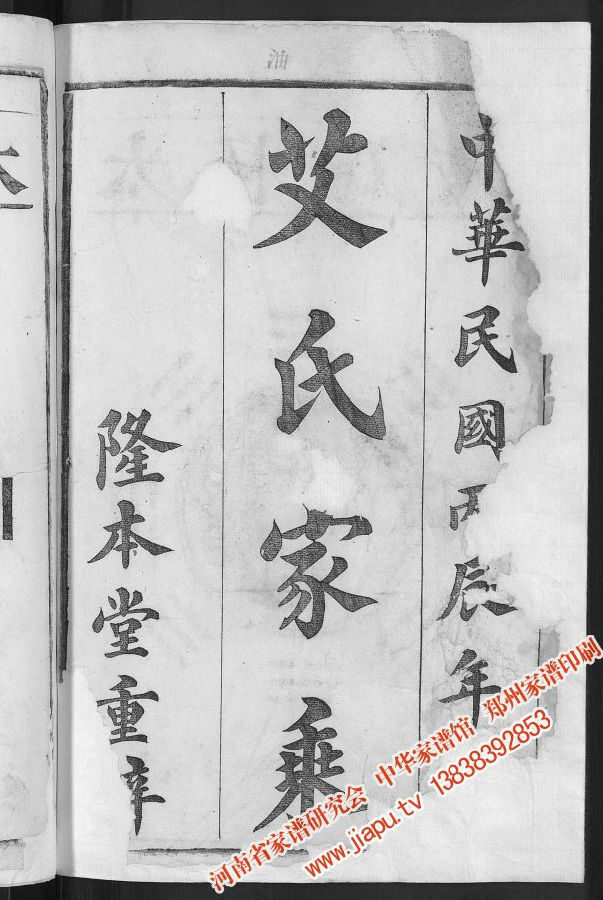 中華民國丙辰年
艾氏家乘
隆本堂重
河南省家谱研究会 中华家谱馆 郑州家谱印刷
www.jiapu.tv 13838392853